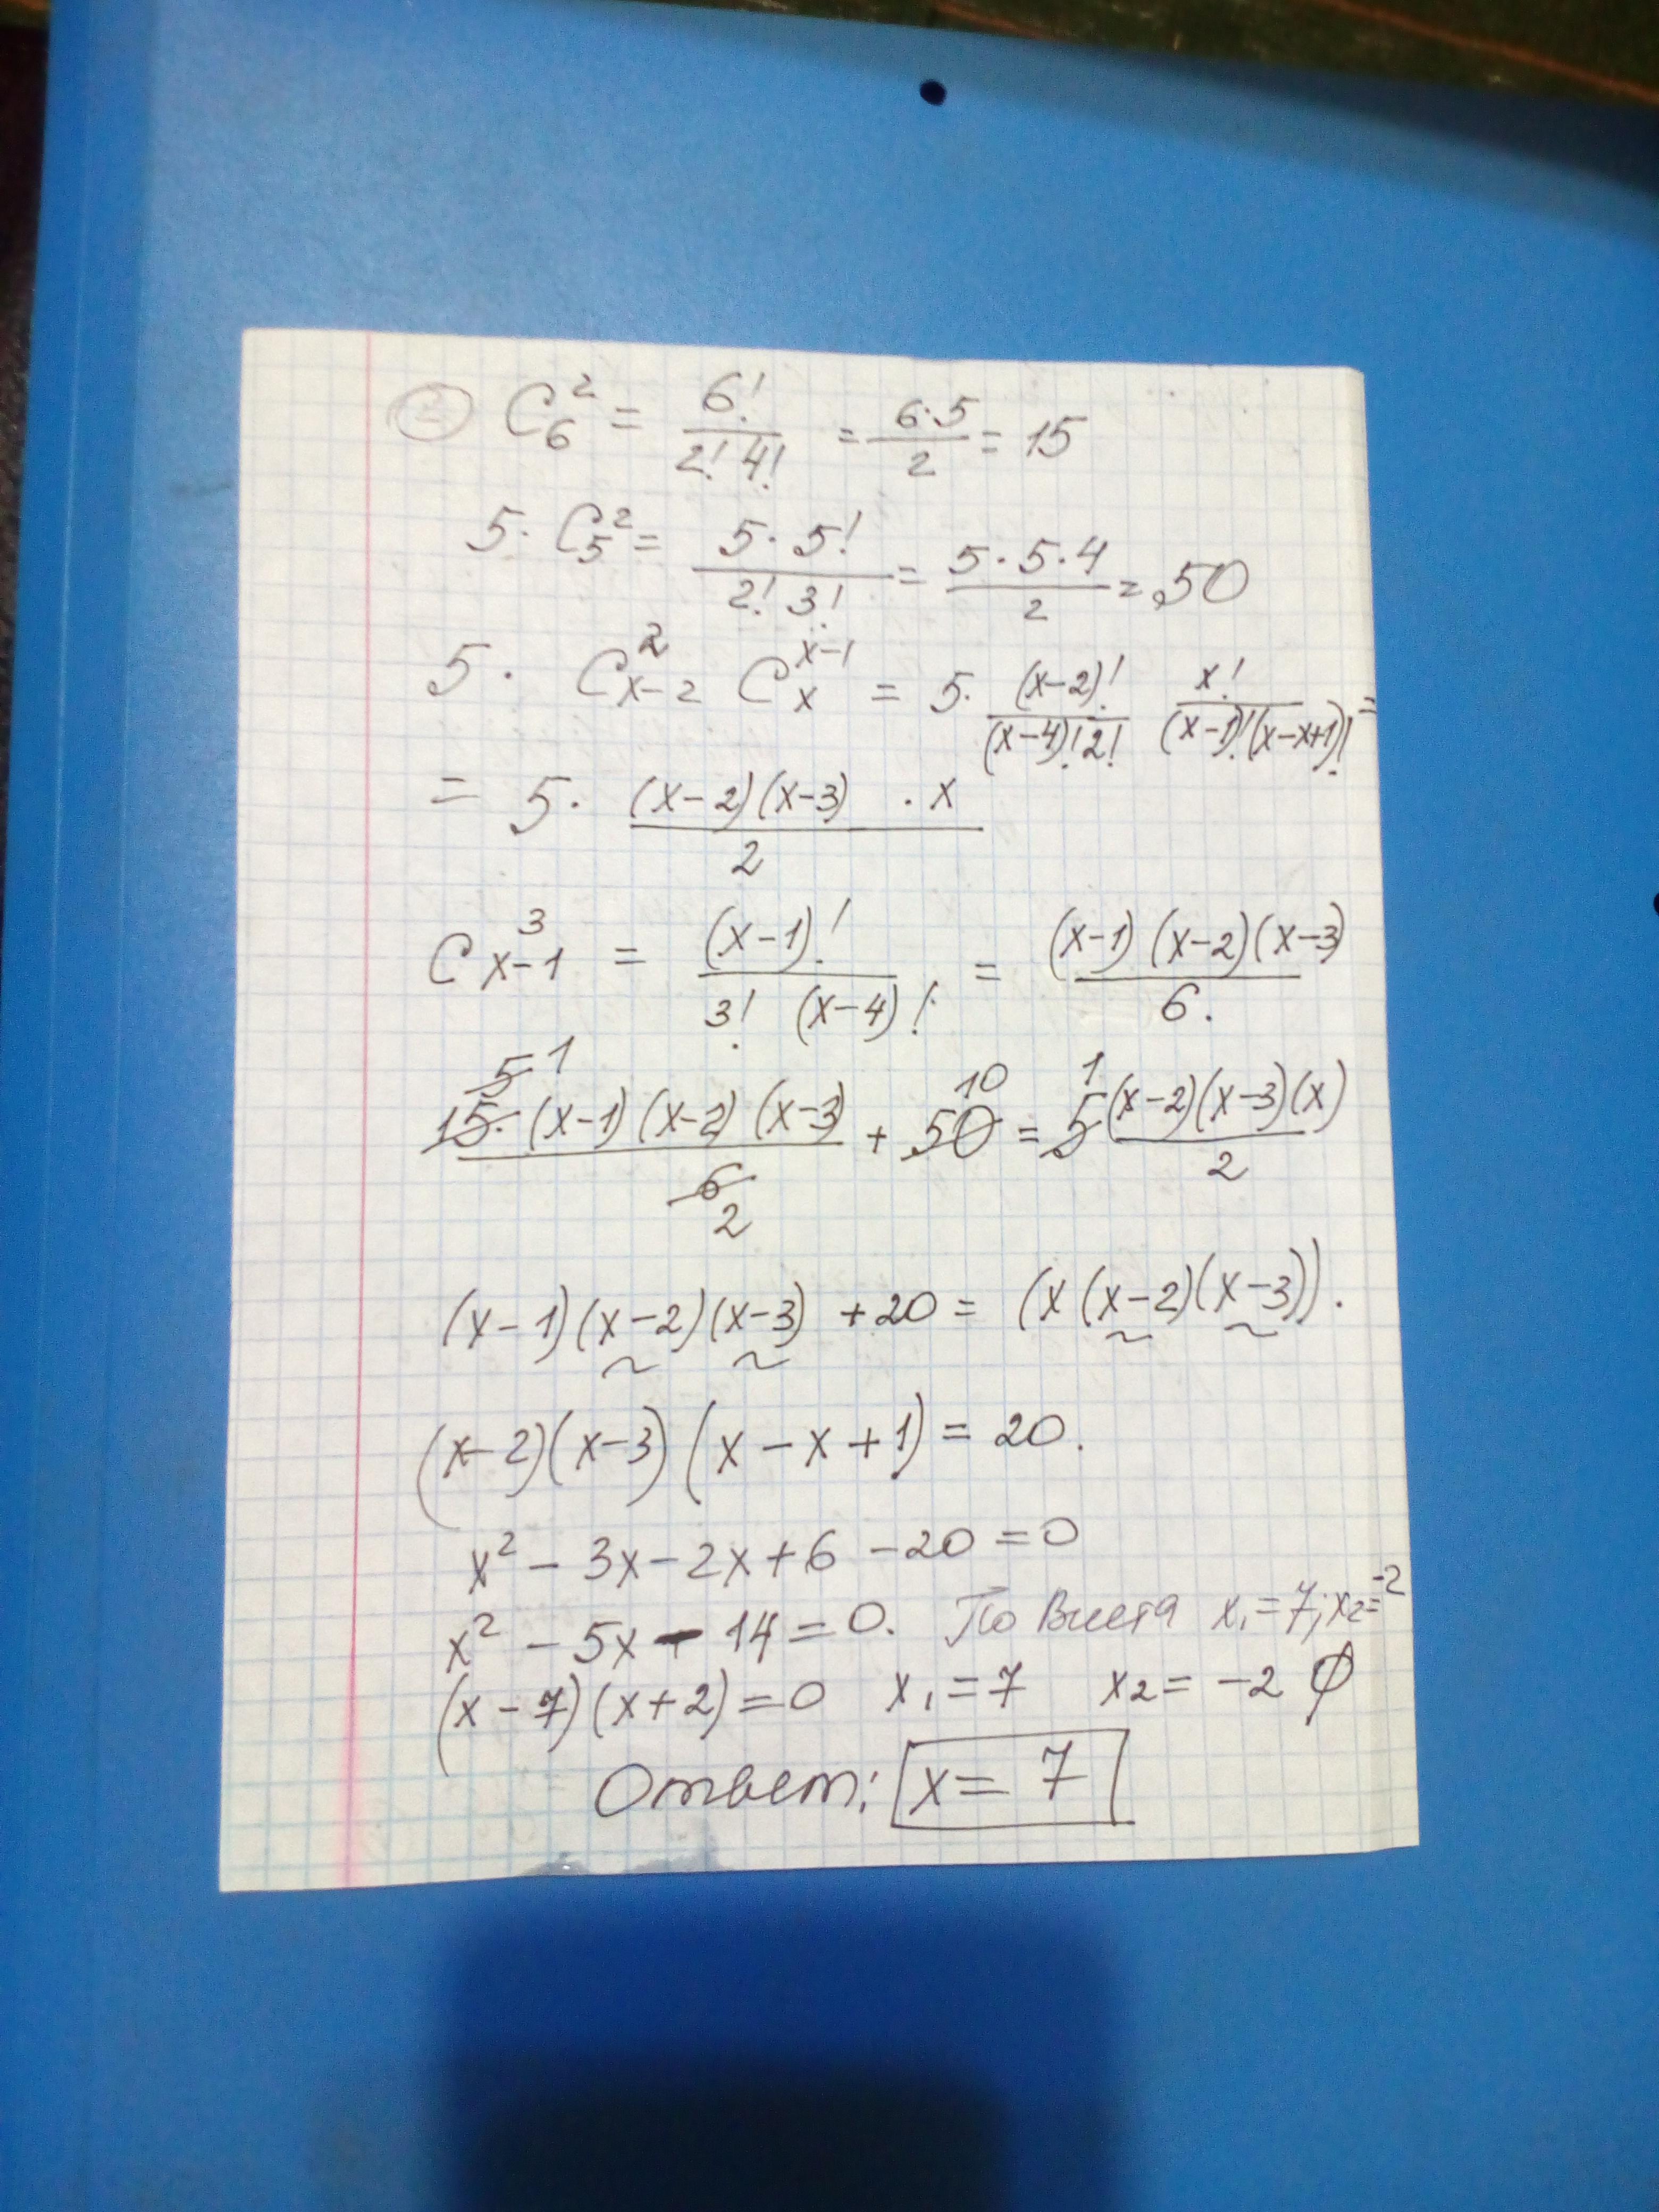 ② C₆² = 6! / 2! 4! = 6·5 / 2 = 15
5· C₅² = 5· 5! / 2! 3! = 5·5·4 / 2 = 50
5· C²ₓ₋₂ Cₓˣ⁻¹ = 5· (x-2)! / (x-4)! 2! x! / (x-1)! (x-x+1)! =
= 5· (x-2)(x-3) · x / 2
C³ₓ₋₁ = (x-1)! / 3! (x-4)! = (x-1)(x-2)(x-3) / 6.
5 1 10 1
15·(x-1)(x-2)(x-3) / 6 2 + 50 = 5 (x-2)(x-3)(x) / 2
(x-1)(x-2)(x-3) +20 = (x(x-2)(x-3)).
(x-2)(x-3)(x-x+1) = 20.
x² - 3x - 2x + 6 - 20 = 0
x² - 5x - 14 = 0. По Виета x₁=7; x₂=-2
(x-7)(x+2)=0 x₁=7 x₂= -2 ∅
Ответ: x = 7